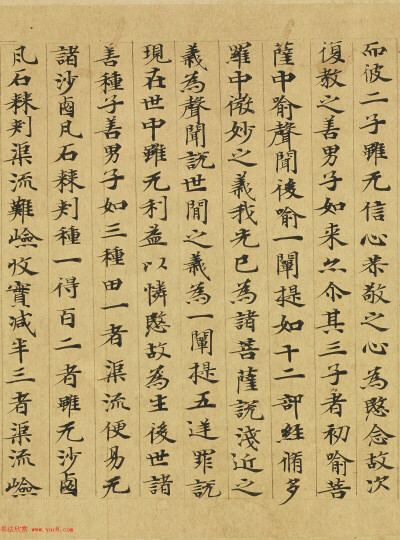 而彼二子雖无信心恭敬之心為愍念故次
復教之善男子如来亦尒其三子者初喻菩
薩中喻聲聞後喻一闡提如十二部經脩多
羅中微妙之義我先已為諸菩薩説淺近之
義為聲聞説世間之義為一闡提五逆罪説
現在世中雖无利益以憐愍故為生後世諸
善種子善男子如三種田一者渠流便易无
諸沙鹵瓦石棘刾種一得百二者雖无沙鹵
瓦石棘刾渠流難嶮收實减半三者渠流嶮
书法欣赏 www.yac8.com